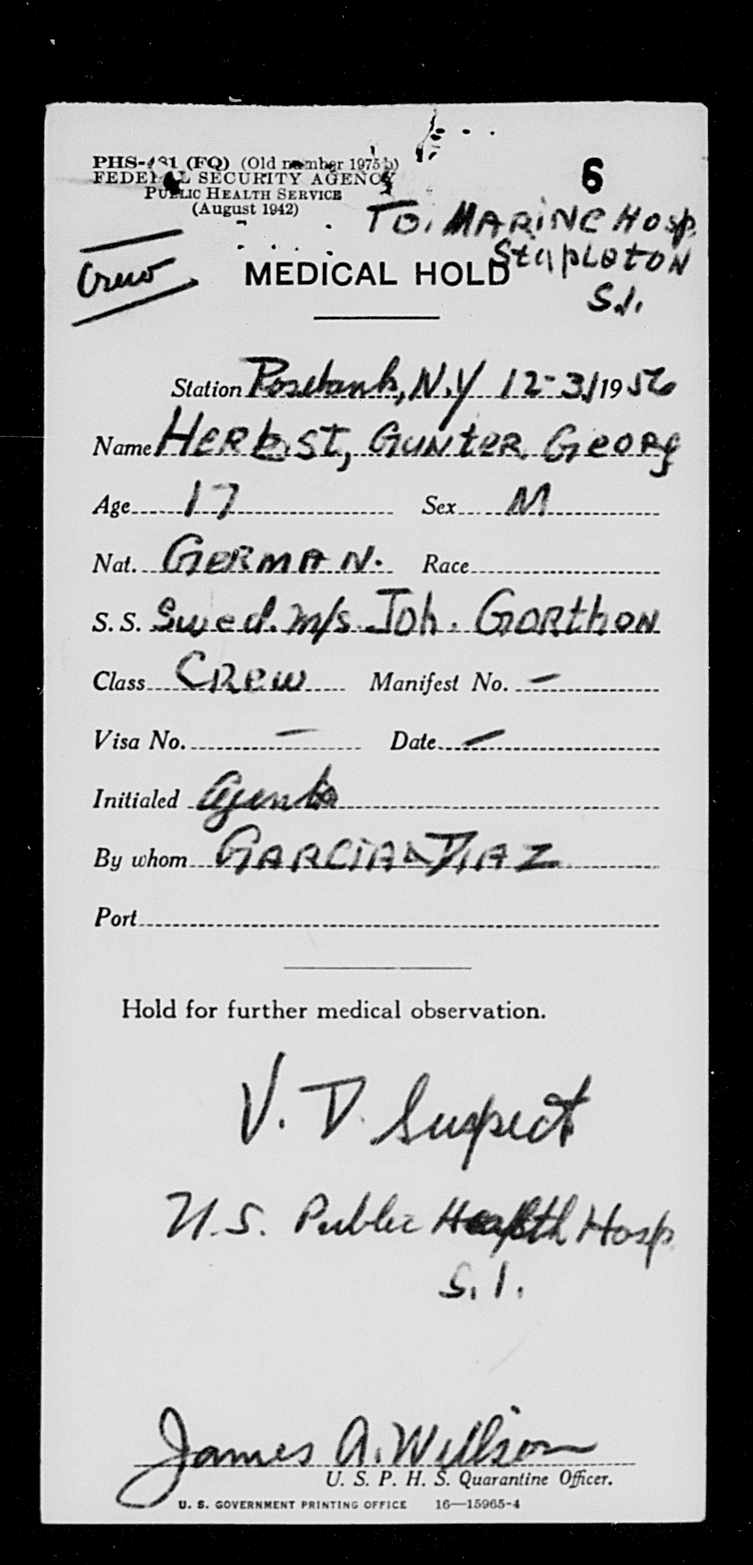 PHS-481 (FQ) (Old number 1975 b)
FEDERAL SECURITY AGENCY
PUBLIC HEALTH SERVICE
(August 1942)
6
TO: MARINE HOSP.
StAPLETON
S.I.
Crew
MEDICAL HOLD
Station Rosebank, N.Y 12-31 1956
Name HERBST, GUNTER GEORG
Age 17 Sex M
Nat. GERMAN. Race
S. S. Swed. m/s Joh. GORthON
Class CREW Manifest No. —
Visa No. — Date —
Initialed Agents
By whom GARCIA & DIAZ
Port
Hold for further medical observation.
V. D. Suspect
U.S. Public Health Hosp
S. I.
James A. Willson
U. S. P. H. S. Quarantine Officer.
U. S. GOVERNMENT PRINTING OFFICE 16—15965-4